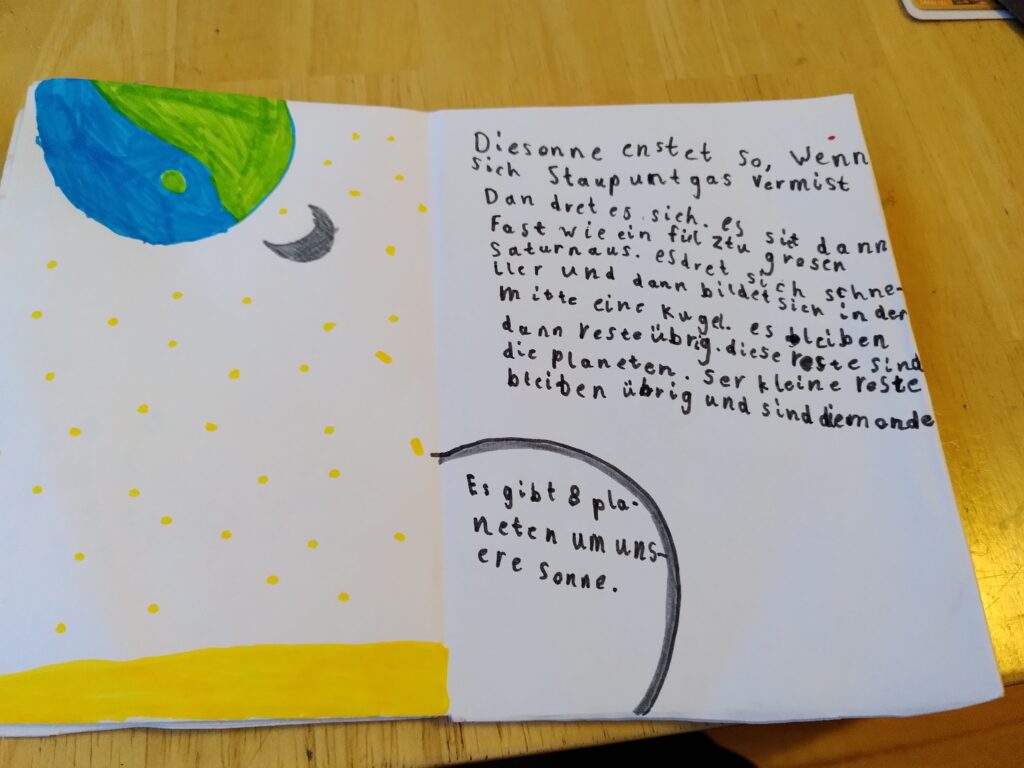 Diesonne enstet so, wenn
sich Staupuntgas vermist
Dan dret es sich. es sit dann
fast wie ein fül ztu grosen
Saturnaus. esdret sich schne-
ller und dann bildet sich in der
mitte eine kugel. es bleiben
dann reste übrig. diese reste sind
die planeten. Ser kleine reste
bleiben übrig und sind diemonde
Es gibt 8 pla-
neten um uns-
ere sonne.